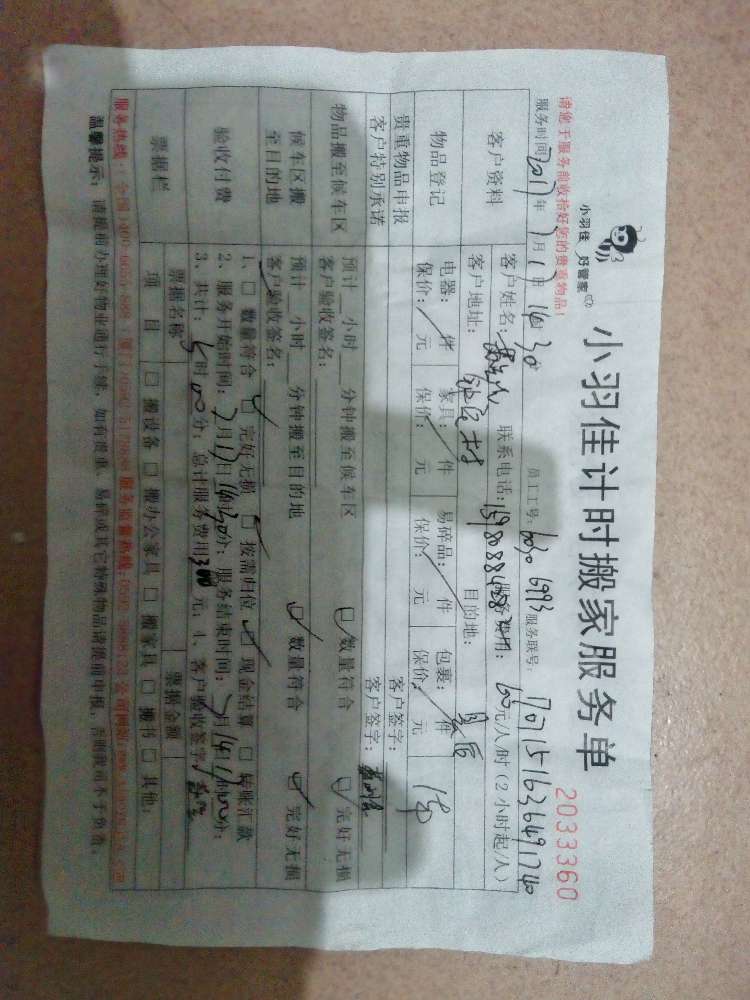 小羽佳 好管家
小羽佳计时搬家服务单
2033360
请您于服务前收拾好您的贵重物品!
服务时间 2017 年 7月 日 14 30 员工工号: 6030 6993 服务联号: 1707151636491740
客户资料
客户姓名: 联系电话: 服务费用: 100元/人/时(2小时起/人)
客户地址: 目的地:
物品登记
电器: 件 家具: 件 易碎品: 件 包裹: 件
保价: 元 保价: 元 保价: 元 保价: 元
贵重物品申报 客户签字:
客户特别承诺 客户签字:
物品搬至候车区
预计 小时 分钟搬至候车区 数量符合 完好无损
客户验收签名:
候车区搬至目的地
预计 小时 分钟搬至目的地 数量符合 完好无损
客户验收签名:
验收付费
1、□ 数量符合 □ 完好无损 □ 按需归位 □ 现金结算 □ 转账汇款
2、服务开始时间: 月 日 时 分; 服务结束时间: 月 日 时 分;
3、共计: 时 00 分; 总计服务费用 300 元; 4、客户验收签字
票据栏
票据名称 票据金额
项目 □ 搬设备 □ 搬办公家具 □ 搬家具 □ 搬书 □ 其他:
服务热线: 全国 400-6055-888 厦门 服务监督热线:
温馨提示: 请提前办理好物业通行手续, 如有贵重、易碎或其它特殊物品请提前申报, 否则我司不予负责。